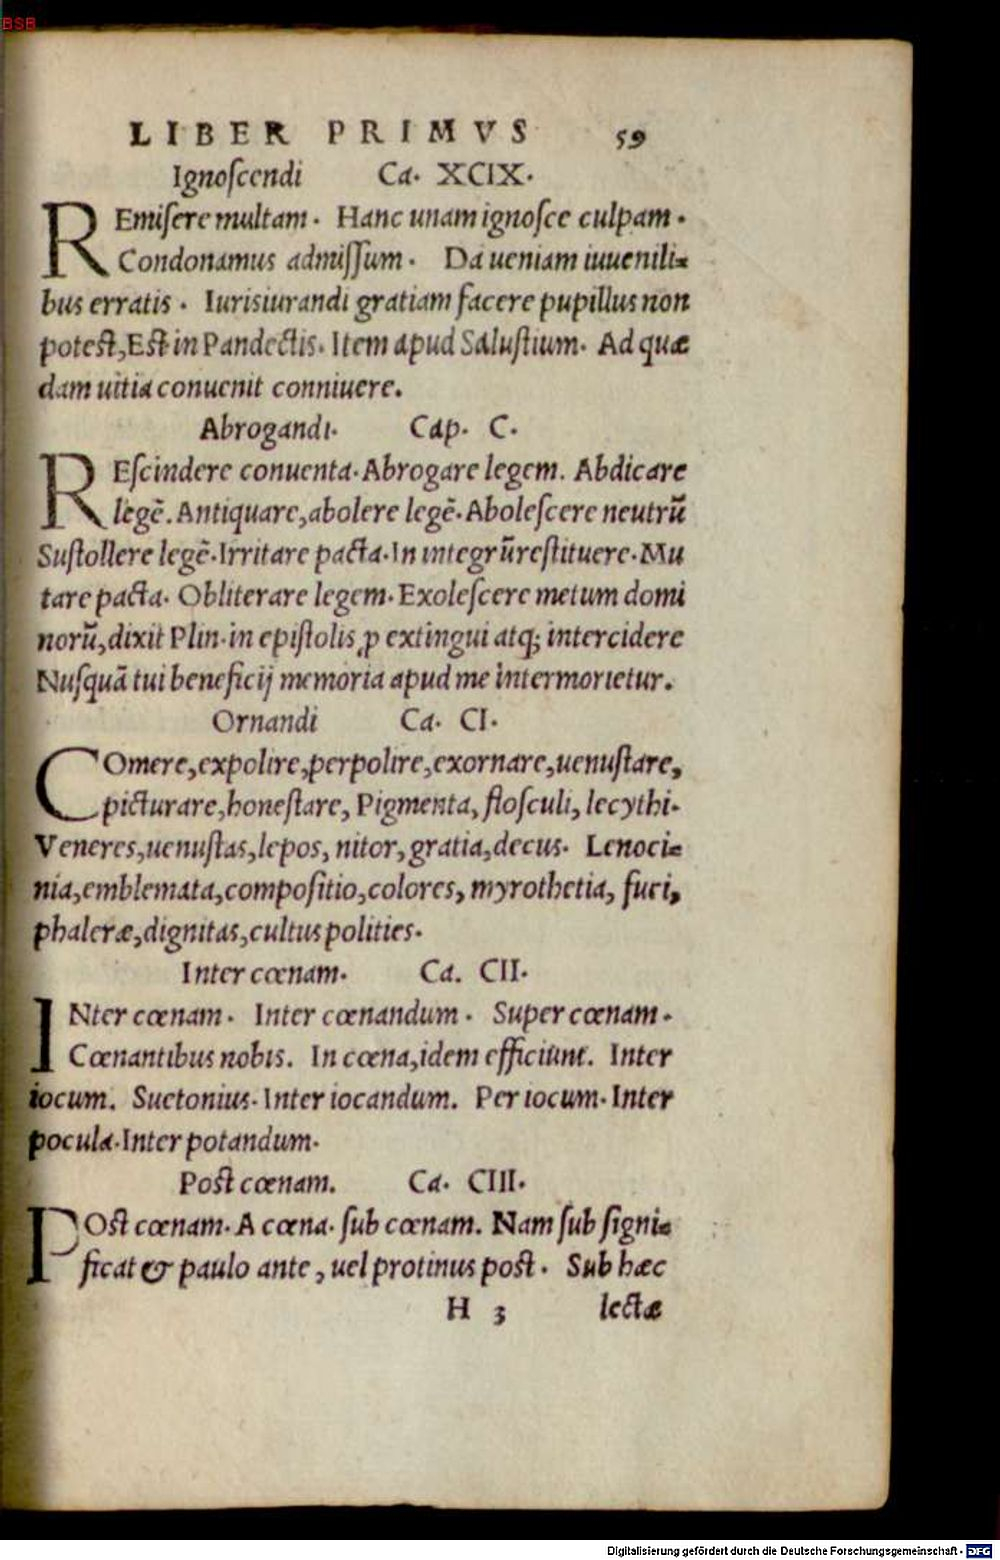 BSB
LIBER PRIMVS 59
Ignoſcendi Ca. XCIX.
REmiſere multam. Hanc unam ignoſce culpam.
Condonamus admiſſum. Da ueniam iuuenili-
bus erratis. Iurisiurandi gratiam facere pupillus non
poteſt, Eſt in Pandectis. Item apud Saluſtium. Ad quæ
dam uitia conuenit conniuere.
Abrogandi. Cap. C.
REſcindere conuenta. Abrogare legem. Abdicare
legē. Antiquare, abolere legē. Aboleſcere neutrū
Suſtollere legē. Irritare pacta. In integrū reſtituere. Mu
tare pacta. Obliterare legem. Exoleſcere metum domi
norū, dixit Plin. in epiſtolis, ꝓ extingui atq; intercidere
Nuſquā tui beneficij memoria apud me intermorietur.
Ornandi Ca. CI.
COmere, expolire, perpolire, exornare, uenuſtare,
picturare, honeſtare, Pigmenta, floſculi, lecythi.
Veneres, uenuſtas, lepos, nitor, gratia, decus. Lenoci-
nia, emblemata, compoſitio, colores, myrothetia, fuci,
phaleræ, dignitas, cultus polities.
Inter cœnam. Ca. CII.
INter cœnam. Inter cœnandum. Super cœnam.
Cœnantibus nobis. In cœna, idem efficiunt. Inter
iocum. Suetonius. Inter iocandum. Per iocum. Inter
pocula. Inter potandum.
Poſt cœnam. Ca. CIII.
POſt cœnam. A cœna. ſub cœnam. Nam ſub ſigni-
ficat & paulo ante, uel protinus poſt. Sub hæc
H 3 lectæ
Digitalisierung gefördert durch die Deutsche Forschungsgemeinschaft - DFG